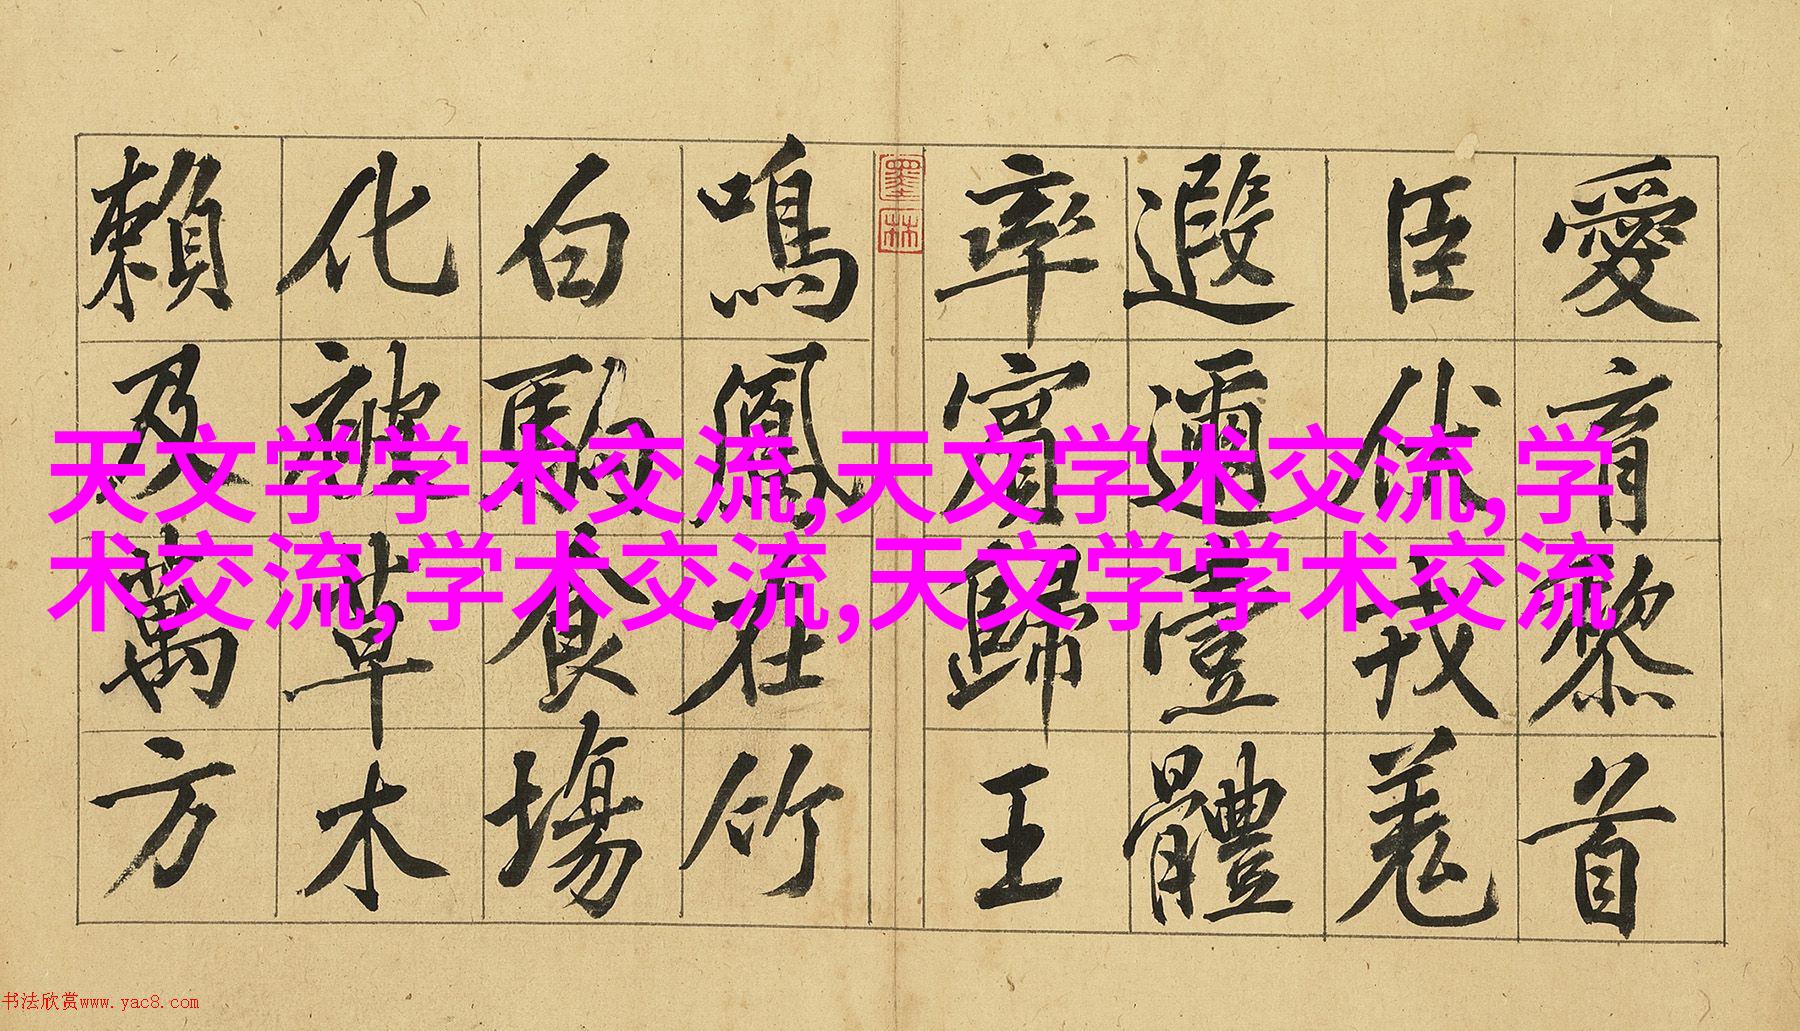 愛育黎首
臣伏戎羌
遐邇壹體
率賓歸王
墨林
鳴鳳在竹
白駒食場
化被草木
賴及萬方
天文学学术交流,天文学术交流,学
术交流,学术交流,天文学学术交流
书法欣赏www.yac8.com